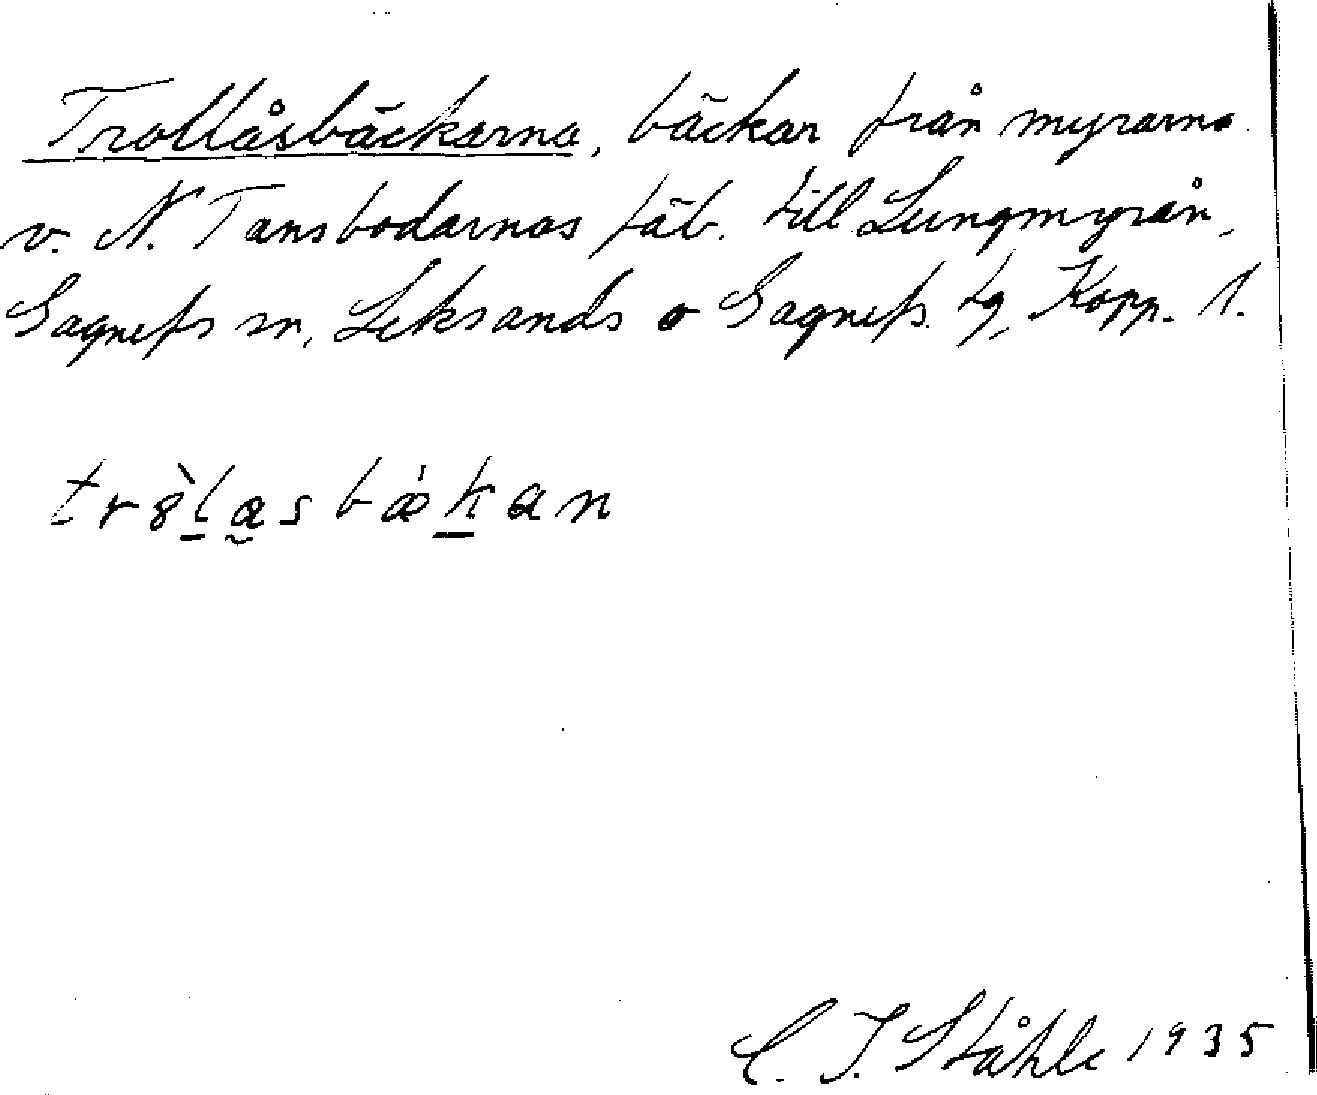 Trollåsbäckarna, bäckar från myrarna
v. N. Tansbodarnas fäb. till Lungmyrån,
Gagnefs sn, Leksands o Gagnefs tg, Kopp. l.
trö̀l̠a̰sbǽk̠an
C. I. Ståhle 1935